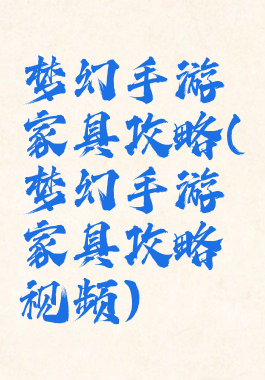 梦幻手游
家具攻略(
梦幻手游
家具攻略
视频)